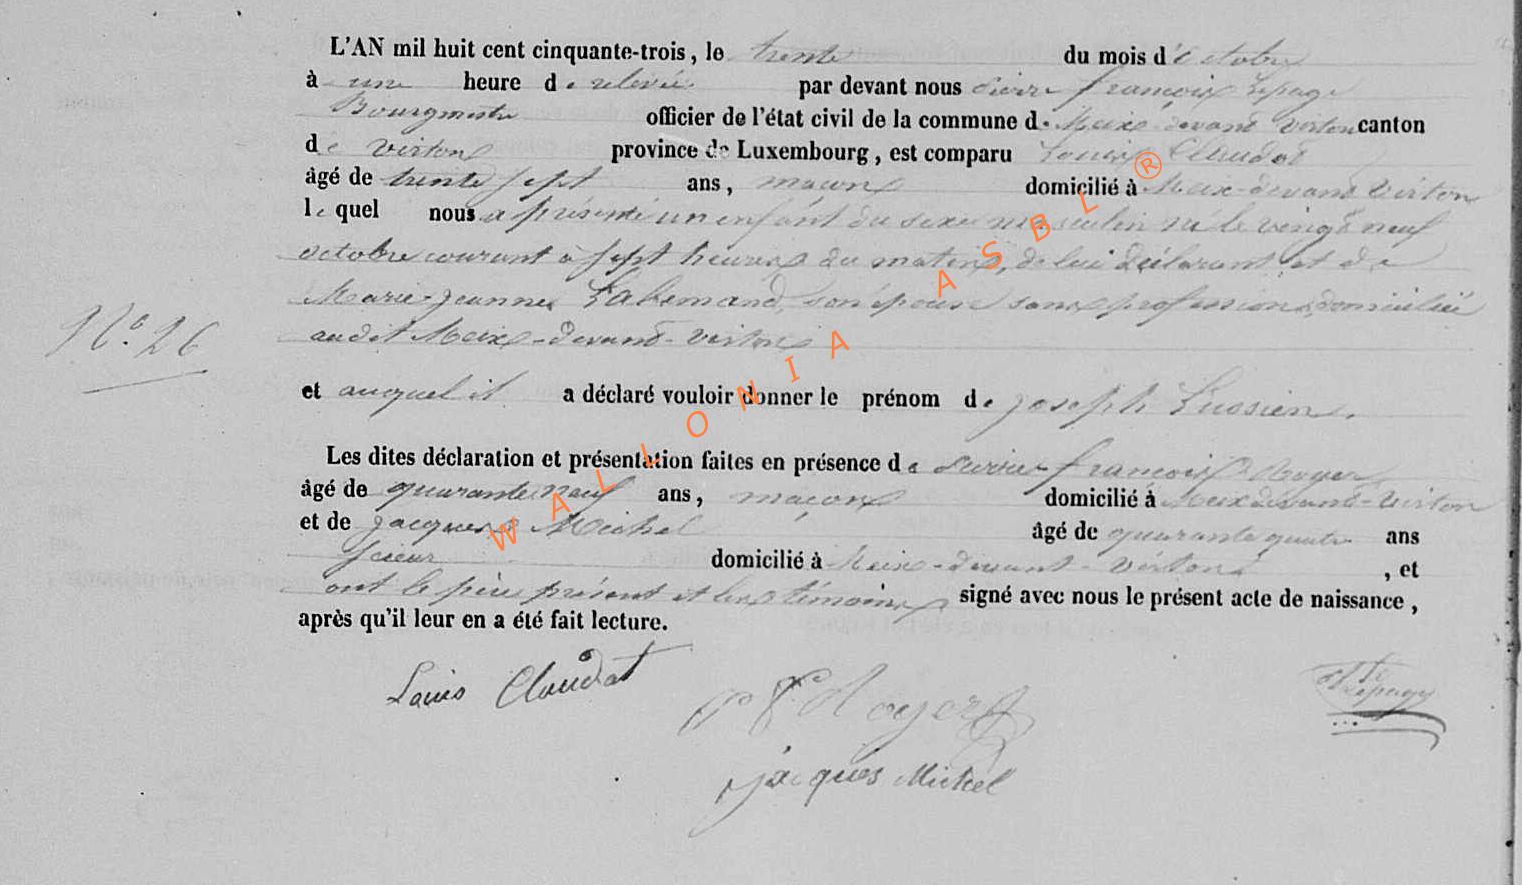 L'AN mil huit cent cinquante-trois, le trente du mois d'octobre
à une heure de relevée par devant nous Pierre françois Lepage
Bourgmestre officier de l'état civil de la commune de Meix-devant Virton canton
de Virton province de Luxembourg, est comparu Louis Claudot
âgé de trente sept ans, maçon domicilié à Meix-devant Virton
le quel nous a présenté un enfant du sexe masculin né le vingt neuf
octobre courant à sept heures du matin, de lui déclarant et de
Marie-jeanne Lallemand, son épouse sans profession domiciliée
audit Meix-devant-virton
N.° 26
et auquel il a déclaré vouloir donner le prénom de joseph Lussien.
Les dites déclaration et présentation faites en présence de Pierre françois Royer
âgé de quarante neuf ans, maçon domicilié à Meix devant-Virton
et de jacques Michel âgé de quarante quatre ans
domicilié à Meix-devant-Virton, et
ont le père présent et les témoins signé avec nous le présent acte de naissance,
après qu'il leur en a été fait lecture.
Louis Claudot
P F Royer
Lepage
jacques Michel
WALLONIA ASBL ®